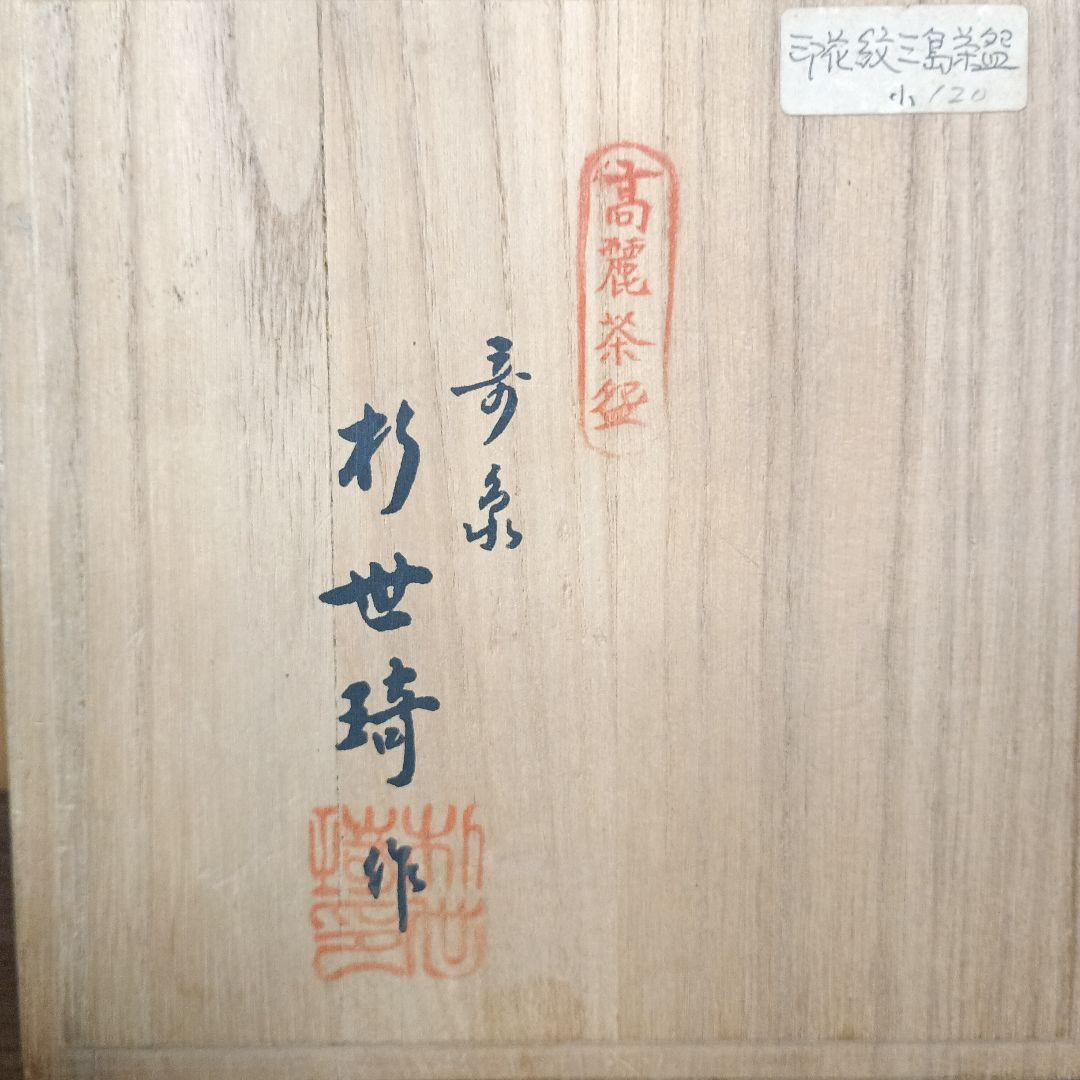 印花紋三島茶盌
小 120
高麗茶盌
寿泉
杉世琦
作